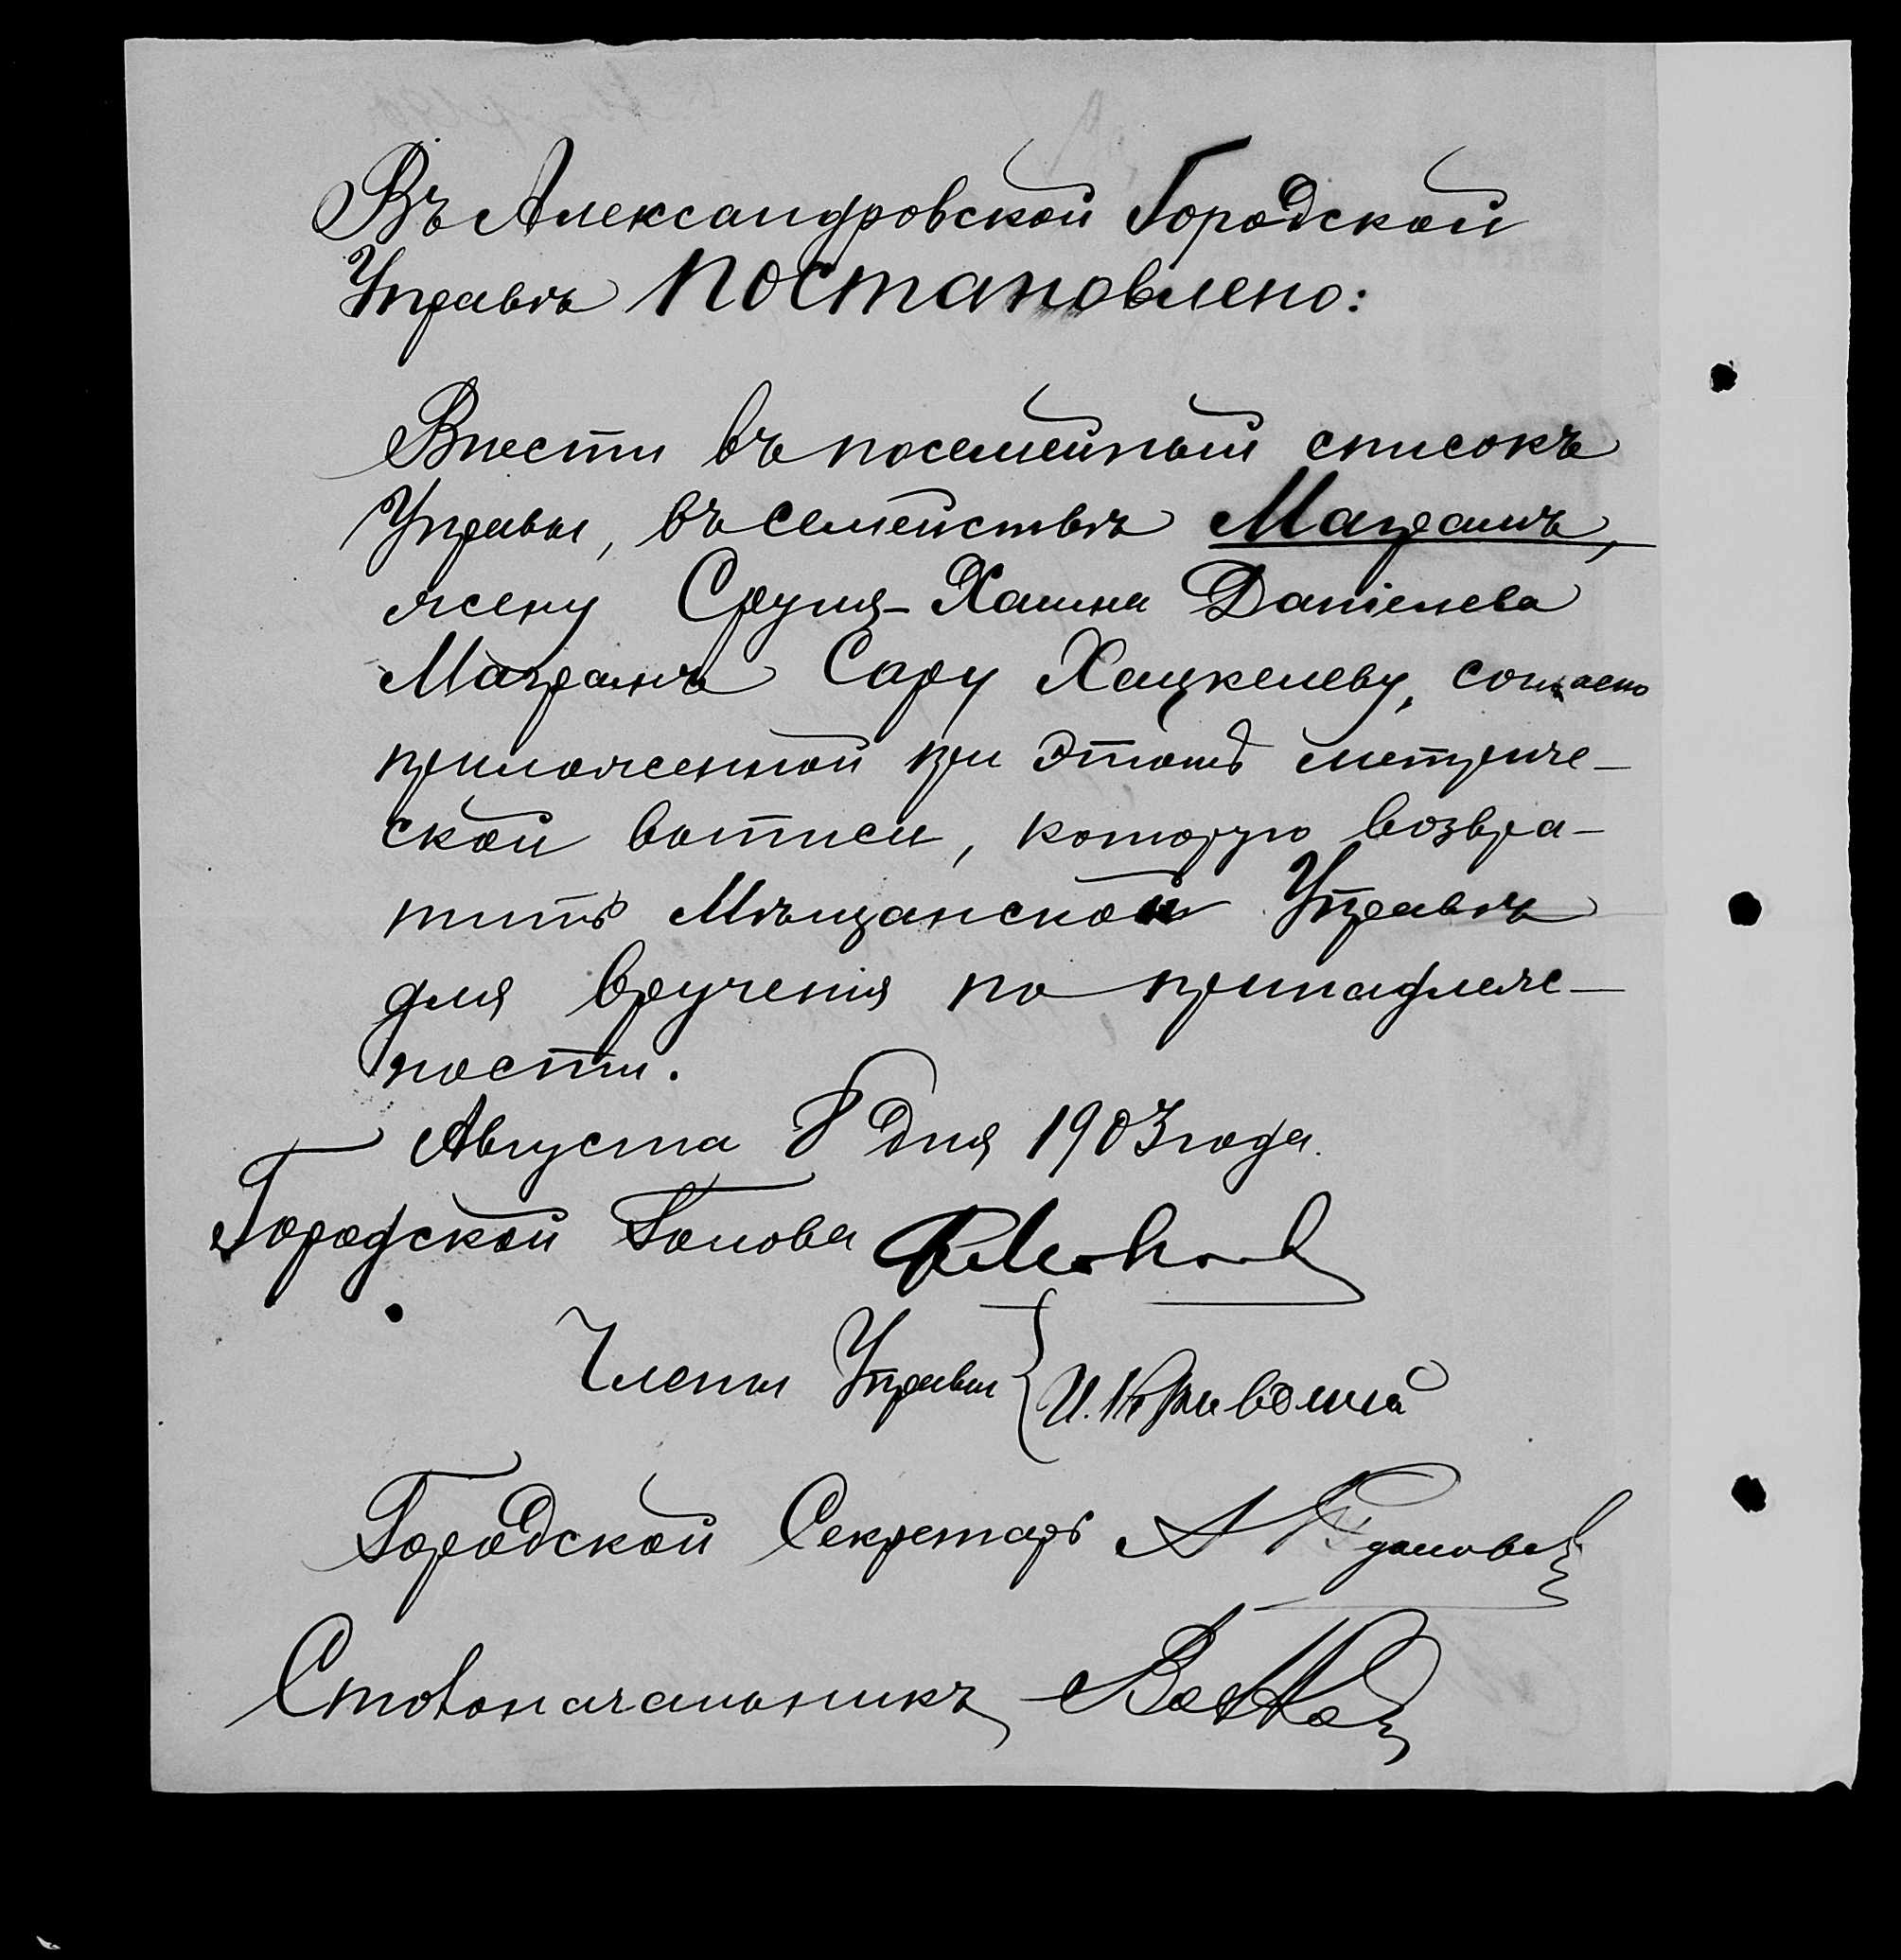 Въ Александровской Городской
Управѣ постановлено:
Внести въ посемейный списокъ
Управы, въ семействѣ Маграмъ,
жену Сруля-Хаима Даніелева
Маграмъ Сару Хацкелеву, согласно
приложенной при этомъ метриче-
ской выписи, которую возвра-
тить Мѣщанской Управѣ
для врученія по принадлеж-
ности.
Августа 8 дня 1903 года.
Городской Голова
Члены Управы И.
Городской Секретарь А
Столоначальникъ